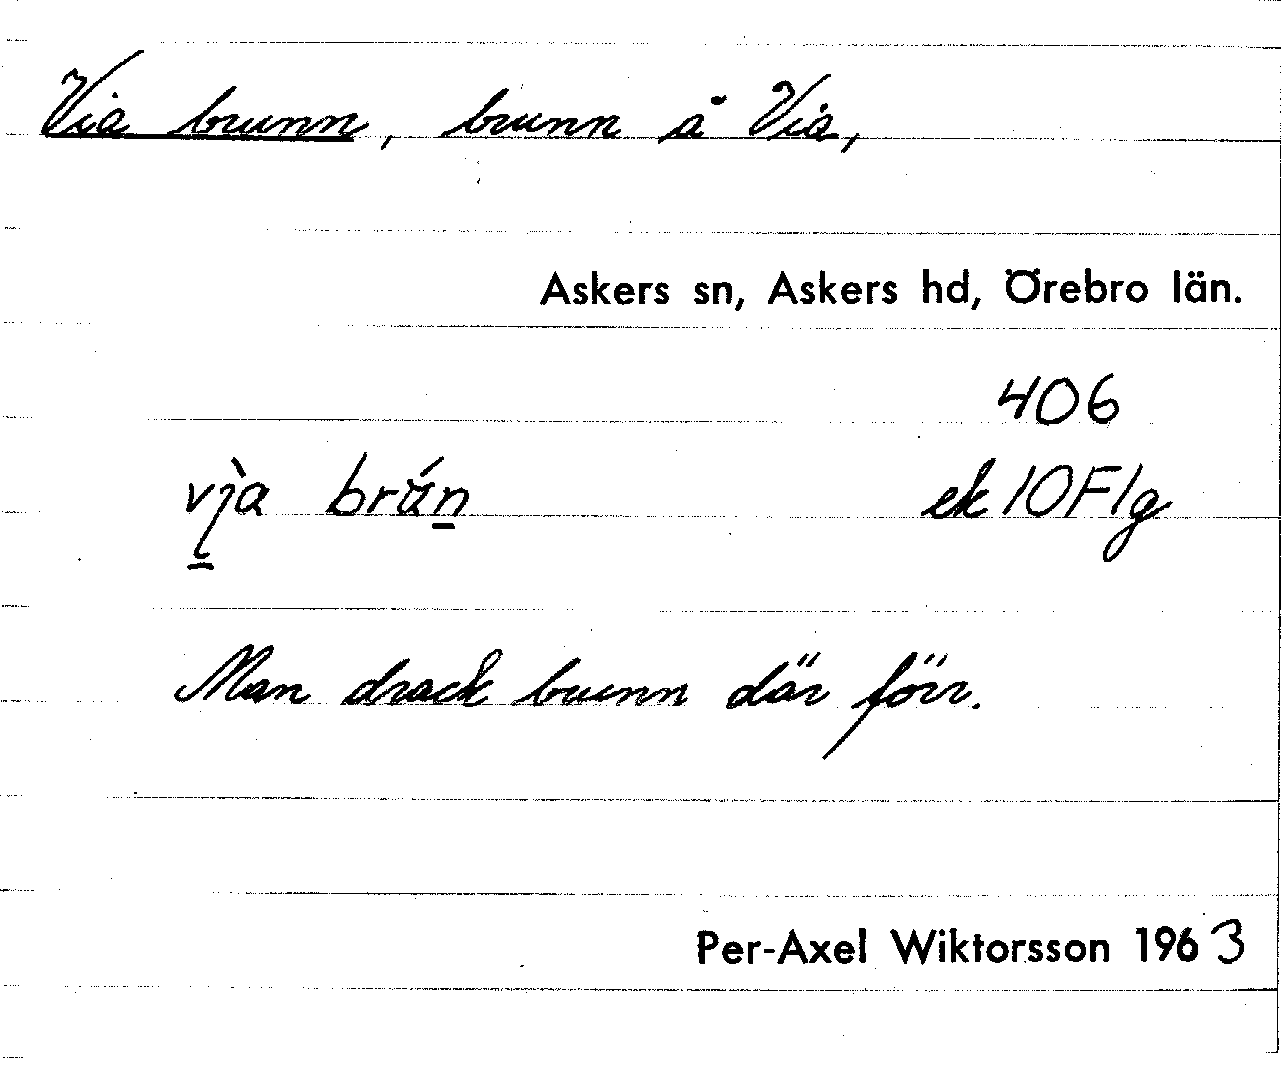 Via brunn, brunn å Via,
Askers sn, Askers hd, Örebro län.
406
ek 10F1g
Man drack brunn där förr.
Per-Axel Wiktorsson 1963